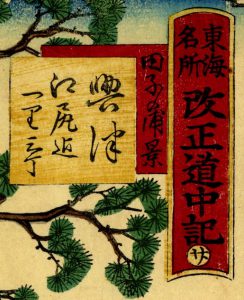 東海
名所
改正道中記
田子の浦景
興津
江尻迄
一里二丁